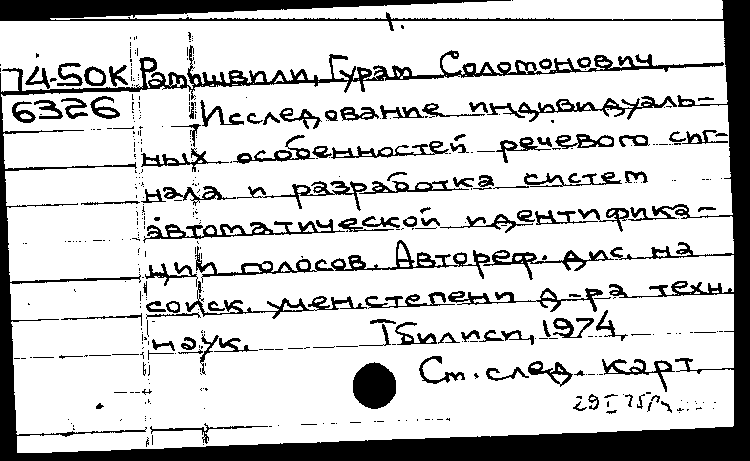 1.
74-50К Рамишвили, Гурам Соломонович.
6326 Исследование индивидуаль-
ных особенностей речевого сиг-
нала и разработка систем
автоматической идентифика-
ции голосов. Автореф. дис. на
соиск. учен. степени д-ра техн.
наук. Тбилиси, 1974.
См. след. карт.
29 I 75